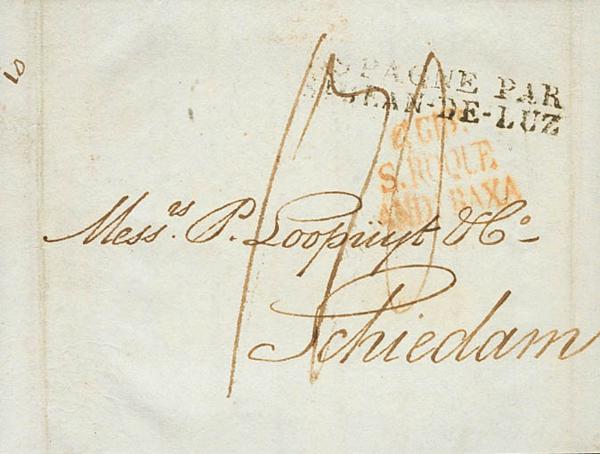 PAGNE PAR
ST JEAN-DE-LUZ
S. ROQUE
AND. BAXA
Mess.rs P. Loopuyt & Co
Schiedam